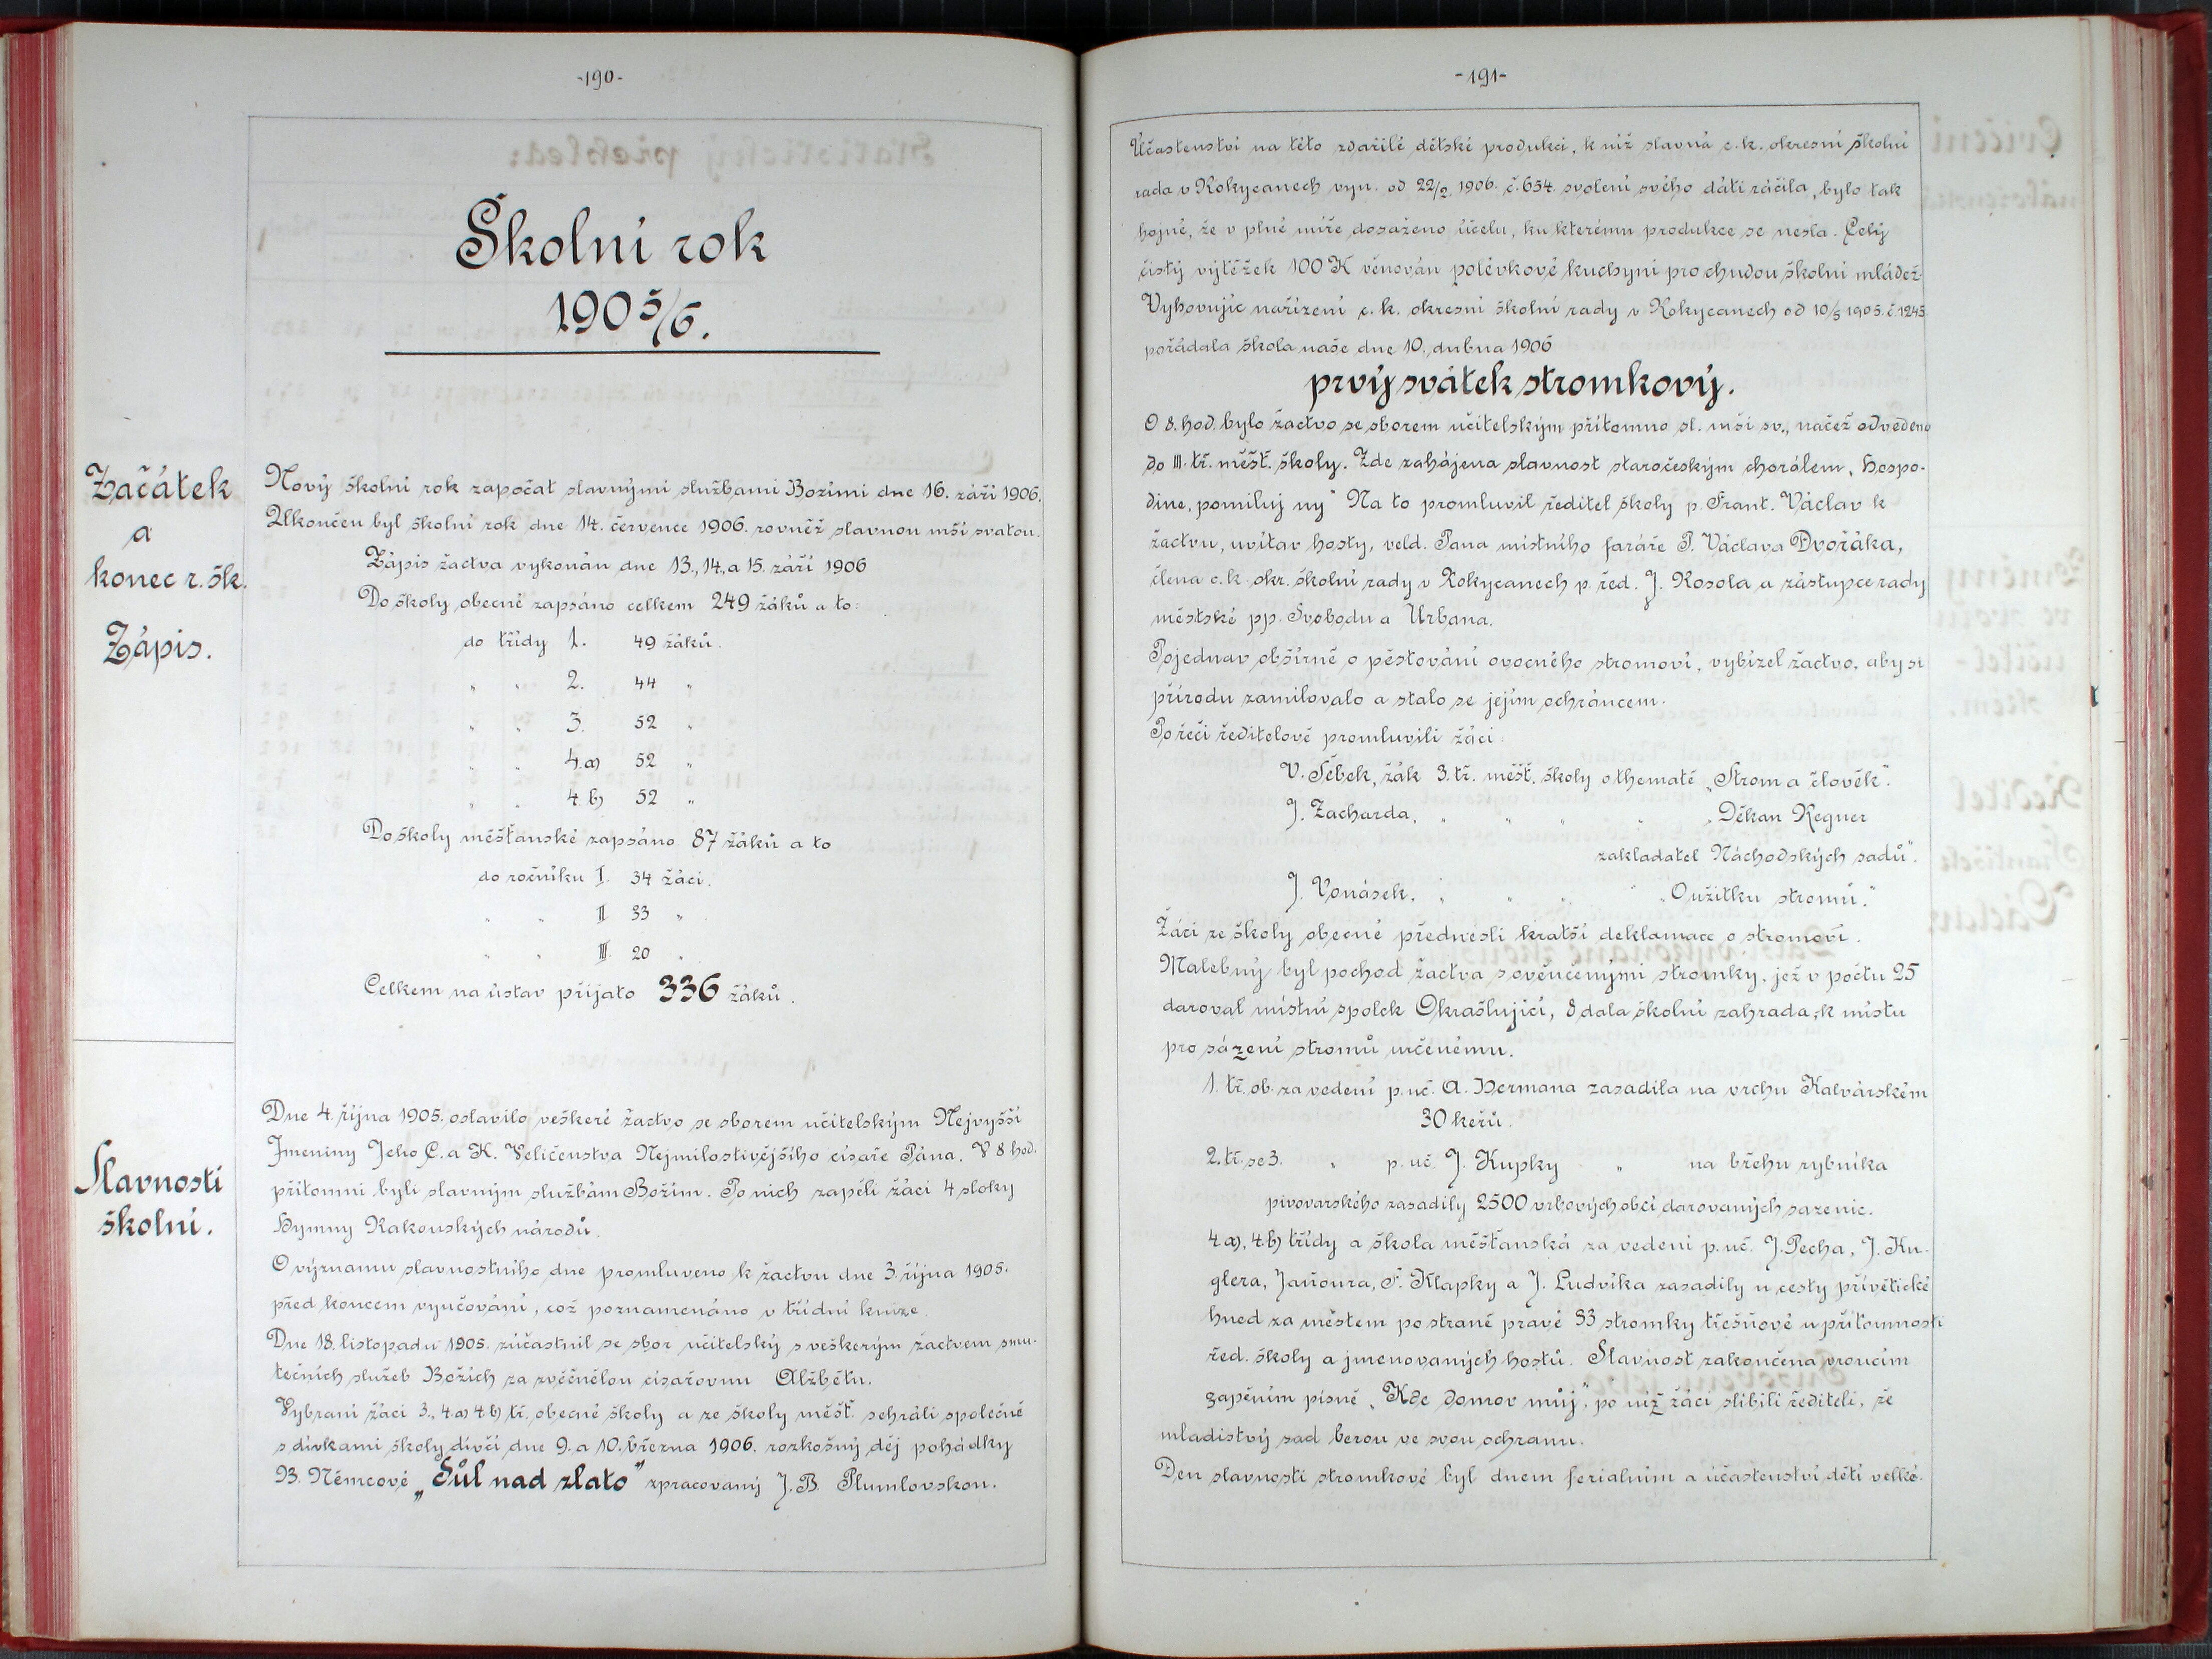 -190-
Školní rok
1905/6.
Začátek
a
konec r. šk.
Zápis.
Nový školní rok započat slavnými službami Božími dne 16. září 1906.
Ukončen byl školní rok dne 14. července 1906. rovněž slavnou mší svatou.
Zápis žactva vykonán dne 13., 14., a 15. září 1906
Do školy obecné zapsáno celkem 249 žáků a to:
do třídy 1. 49 žáků.
" " 2. 44 "
" " 3. 52 "
" " 4.a) 52 "
" " 4.b) 52 "
Do školy měšťanské zapsáno 87 žáků a to
do ročníku I. 34 žáci.
" " II 33 "
" " III. 20 "
Celkem na ústav přijato 336 žáků.
Slavnosti
školní.
Dne 4. října 1905. oslavilo veškeré žactvo se sborem učitelským Nejvyšší
Jmeniny Jeho C. a K. Veličenstva Nejmilostivějšího císaře Pána. V 8 hod.
přítomni byli slavným službám Božím. Po nich zapěli žáci 4 sloky
Hymny Rakouských národů.
O významu slavnostního dne promluveno k žactvu dne 3. října 1905.
před koncem vyučování, což poznamenáno v třídní knize.
Dne 18. listopadu 1905. zúčastnil se sbor učitelský s veškerým žactvem smu-
tečních služeb Božích za zvěčnělou císařovnu Alžbětu.
Vybraní žáci 3., 4.a) 4.b) tř. obecné školy a ze školy měšť. sehráli společně
s dívkami školy dívčí dne 9. a 10. března 1906. rozkošný děj pohádky
B. Němcové „Sůl nad zlato" zpracovaný J. B. Plumlovskou.
-191-
Účastenství na této zdařilé dětské produkci, k níž slavná c. k. okresní školní
rada v Rokycanech vyn. od 22/2. 1906. č. 654. svolení svého dáti ráčila, bylo tak
hojné, že v plné míře dosaženo účelu, ku kterému produkce se nesla. Celý
čistý výtěžek 100 K věnován polévkové kuchyni pro chudou školní mládež.
Vyhovujíc nařízení c. k. okresní školní rady v Rokycanech od 10/5 1905. č. 1245.
pořádala škola naše dne 10. dubna 1906
prvý svátek stromkový.
O 8. hod. bylo žactvo se sborem učitelským přítomno sl. mši sv., načež odvedeno
do III. tř. měšť. školy. Zde zahájena slavnost staročeským chorálem „Hospo-
dine, pomiluj ny" Na to promluvil ředitel školy p. Frant. Václav k
žactvu, uvítav hosty, veld. Pana místního faráře P. Václava Dvořáka,
člena c. k. okr. školní rady v Rokycanech p. řed. J. Kosola a zástupce rady
městské pp. Svobodu a Urbana.
Pojednav obšírně o pěstování ovocného stromoví, vybízel žactvo, aby si
přírodu zamilovalo a stalo se jejím ochráncem.
Po řeči ředitelově promluvili žáci:
V. Šebek, žák 3. tř. měšť. školy o thematě „Strom a člověk".
J. Zacharda, " " " " „Děkan Regner
zakladatel Náchodských sadů".
J. Vonásek, " " " " „O užitku stromů."
Žáci ze školy obecné přednesli kratší deklamace o stromoví.
Malebný byl pochod žactva s ověnčenými stromky, jež v počtu 25
daroval místní spolek Okrašlující, 8 dala školní zahrada, k místu
pro sázení stromů určenému.
1. tř. ob. za vedení p. uč. A. Hermana zasadila na vrchu Kalvárském
30 keřů.
2. tř. se 3. " p. uč. J. Kupky " na břehu rybníka
pivovarského zasadily 2500 vrbových obcí darovaných sazenic.
4.a), 4.b) třídy a škola měšťanská za vedení p. uč. J. Pecha, J. Ku-
glera, Jaňoura, F. Klapky a J. Ludvíka zasadily u cesty přívětické
hned za městem po straně pravé 33 stromky třešňové u přítomnosti
řed. školy a jmenovaných hostů. Slavnost zakončena vroucím
zapěním písně „Kde domov můj", po níž žáci slíbili řediteli, že
mladistvý sad berou ve svou ochranu.
Den slavnosti stromkové byl dnem ferialním a účastenství dětí velké.